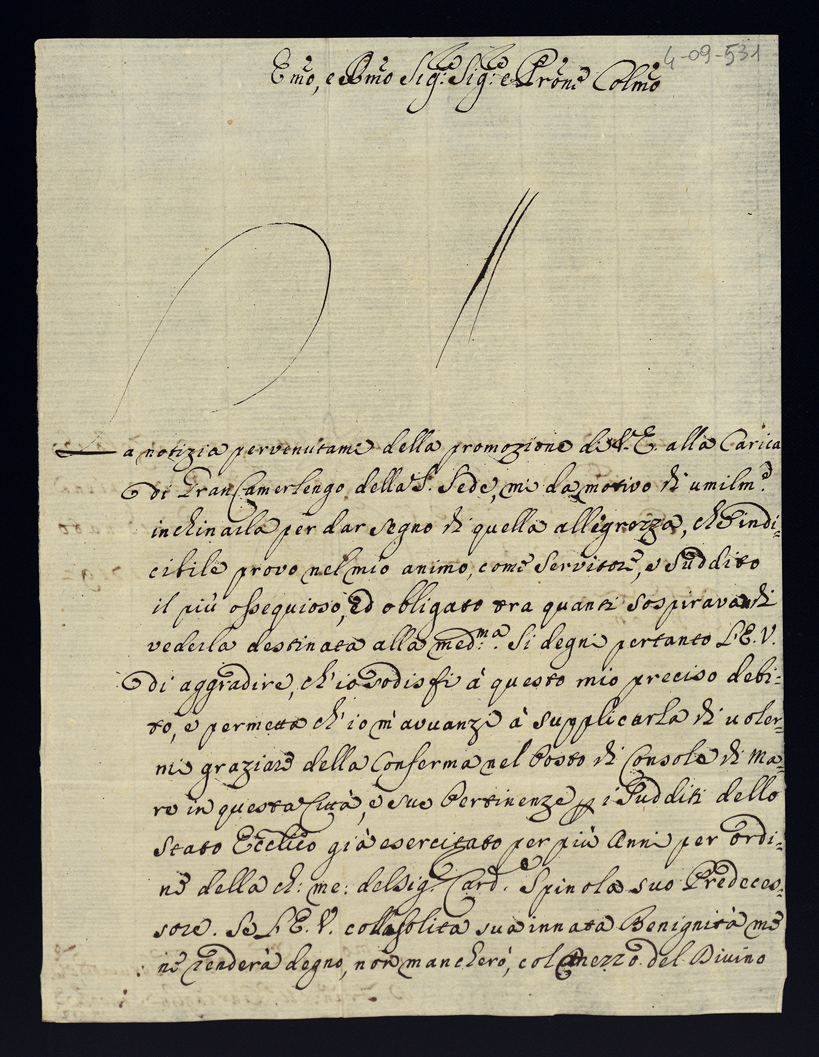 4-09-531
Emo, e Rmo Sig.re Sig.re e Prone Colmo
La notizia pervenutame della promozione di V.E. alla Carica
di Gran Camerlengo della S. Sede, mi da motivo di umilm.e
inchinarla per dar segno di quella allegrezza, che indi:
cibile provo nel mio animo, come Servitore, e Suddito
il più ossequioso, ed obligato tra quanti sospiravan di
vederla destinata alla med:ma. Si degni pertanto L'E.V.
di aggradire, ch'io sodisfi à questo mio preciso debi:
to, e permetta ch'io m'avvanzi à supplicarla di voler:
mi graziare della Conferma nel Posto di Console di Ma:
re in questa Città, e sue Pertinenze p i Sudditi dello
Stato Ecclico già esercitato per più Anni per ordi:
ne della ch: me: del Sig.r Card.e Spinola suo Predeces:
sore. Se L'E.V. colla solita sua innata Benignità me
ne renderà degno, non mancherò, col mezzo del Divino